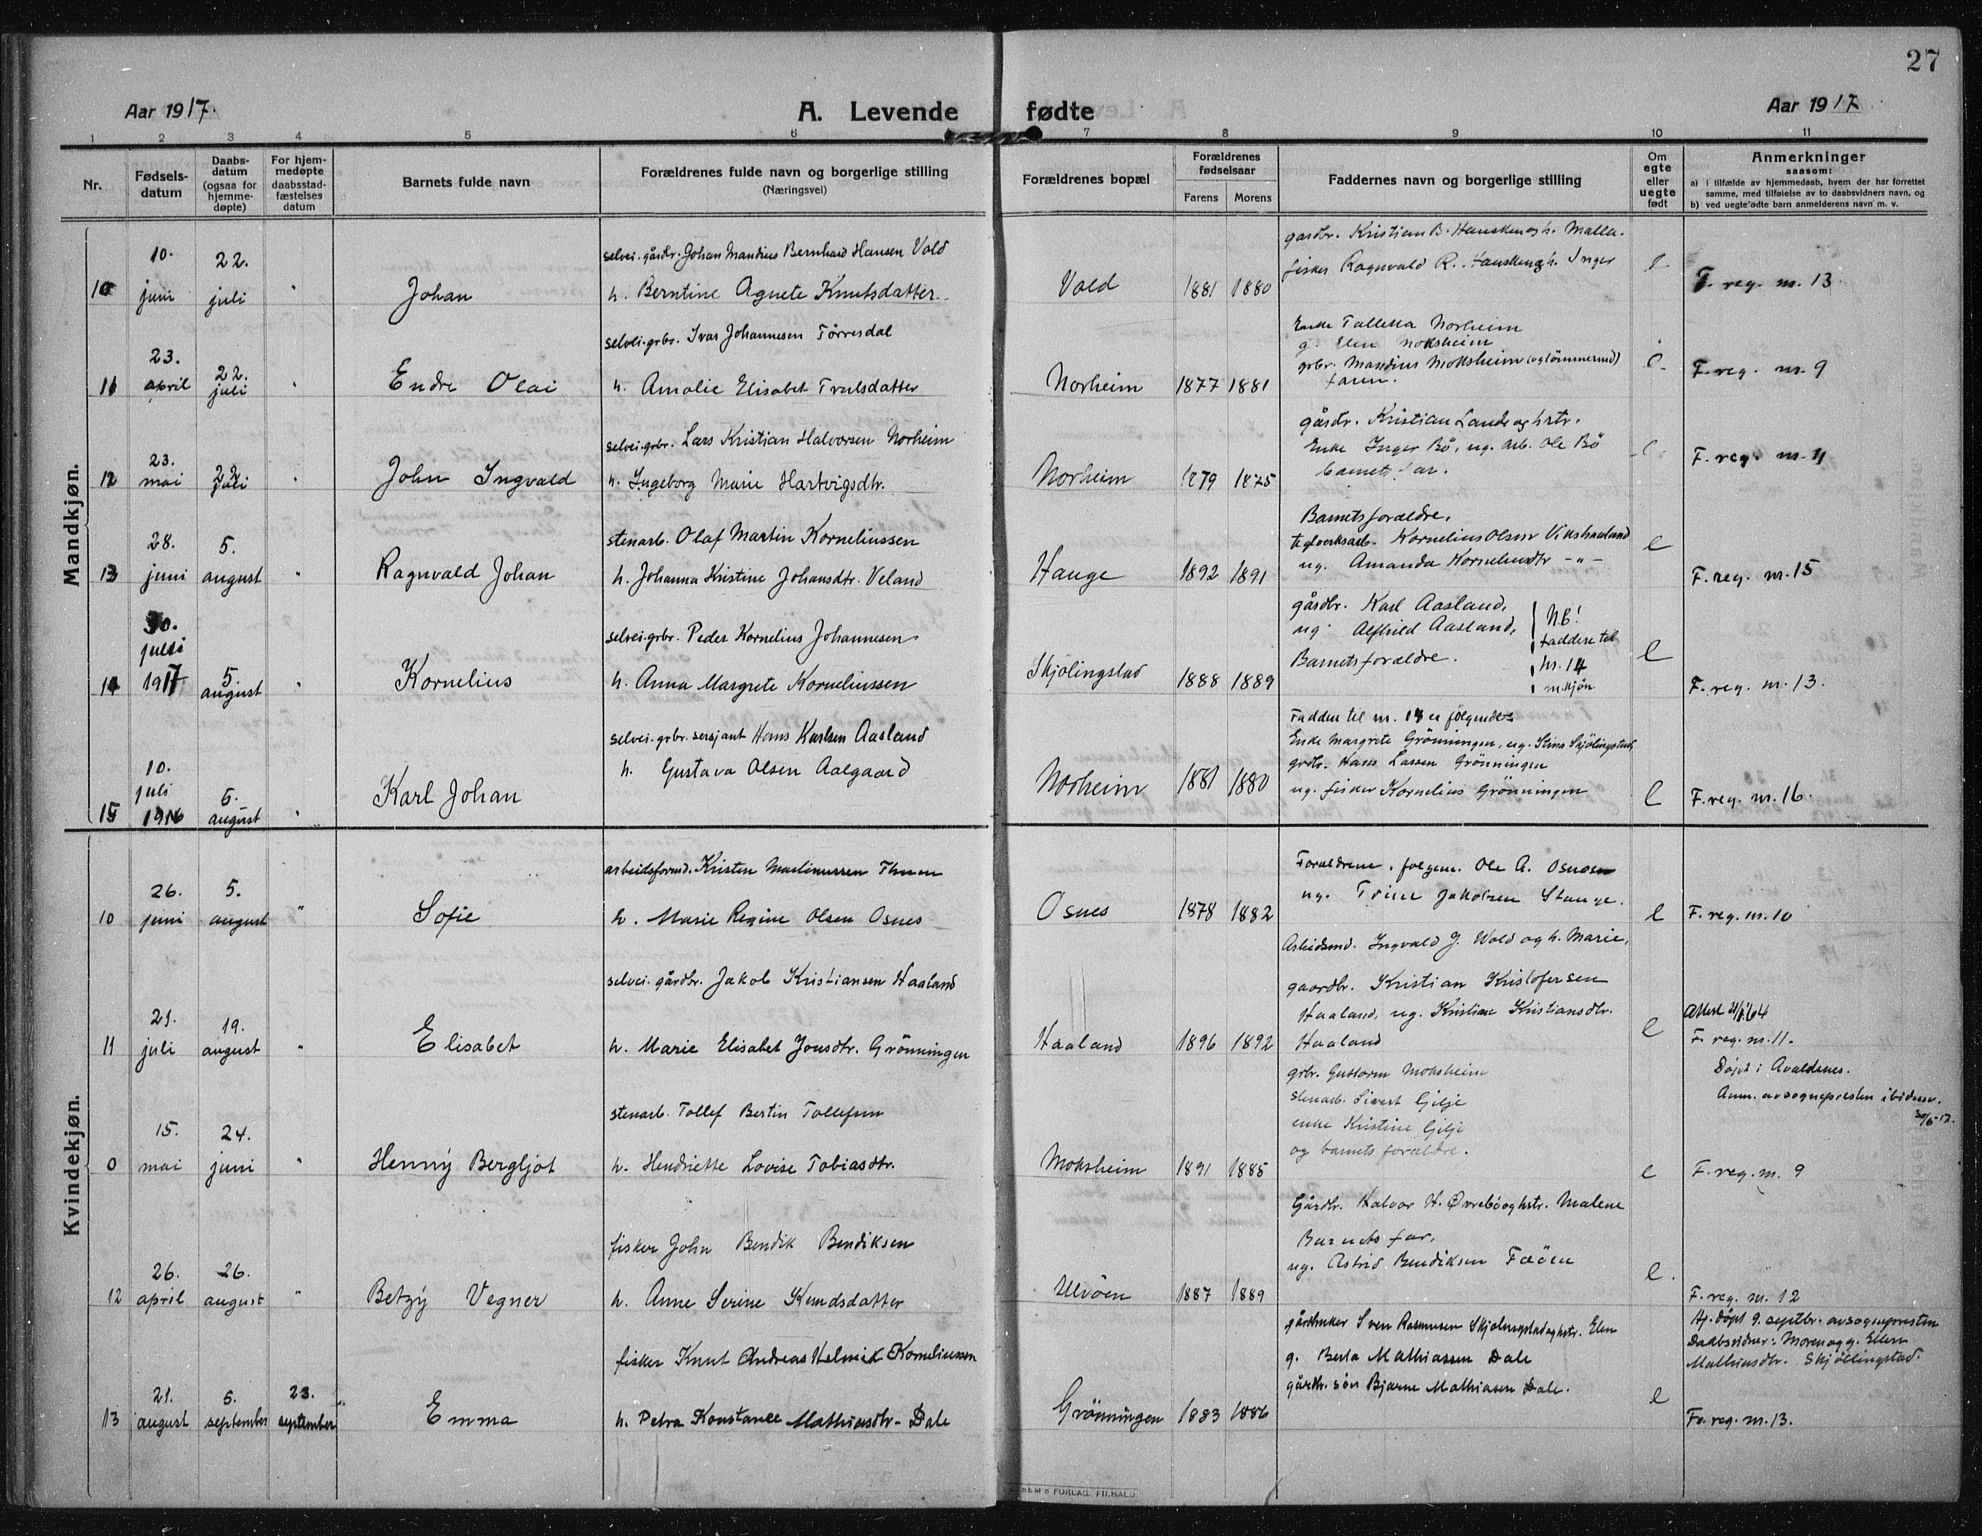 27
Aar 1917.
A. Levende fødte
Aar 1917.
1 2 3 4 5 6 7 8 9 10 11
Nr.
Fødsels-
datum
Daabs-
datum
(ogsaa for
hjemme-
døpte)
For hjem-
medøpte
daabsstad-
fæstelses
datum
Barnets fulde navn
Forældrenes fulde navn og borgerlige stilling
(Næringsvei)
Forældrenes bopæl
Forældrenes
fødselsaar
Farens Morens
Faddernes navn og borgerlige stilling
Om
egte
eller
uegte
født
Anmerkninger
saasom:
a) i tilfælde av hjemmedaab, hvem der har forrettet
samme, med tilføielse av to daabsvidners navn, og
b) ved uegte fødte barn anmelderens navn m. v.
Mandkjøn.
10
10.
juni
22.
juli
"
Johan
selvei. gårdbr. Johan Mandius Bernhard Hansen Vold
h. Berntine Agnete Knutsdatter
Vold
1881 1880
gardbr. Kristian B. Hausken og h. Malla.
fisker Ragnvald R. Hausken og h. Inger
e
F. reg. nr. 13.
11
23.
april
22.
juli
"
Endre Olai
selvei. grbr. Ivar Johannesen Tørresdal
h. Amalie Elisabet Trulsdatter
Norheim
1877 1881
Enke Talletta Norheim
g. Elen Moksheim
grbr. Mandius Moksheim (og tømmermd)
faren.
e.
F. reg. nr. 9
12
23.
mai
22.
juli
"
John Ingvald
selvei. grbr. Lars Kristian Halvorsen Norheim
h. Ingeborg Marie Hartvigsdtr.
Norheim
1879 1875
gårdbr. Kristian Lande og hstr.
Enke Inger Bö, ug. arb. Ole Bö
barnets far.
e.
F. reg. nr. 11
13
28.
juni
5.
august
"
Ragnvald Johan
stenarb. Olaf Martin Korneliussen
h. Johanna Kristine Johansdtr. Veland
Hauge
1892 1891
Barnets forældre.
teglverksarb. Kornelius Olsen Vikshaaland
ug. Amanda Korneliusdtr - " -
e
F. reg. nr. 15
14
30.
juli
1917
5.
august
"
Kornelius
selvei. grbr. Peder Kornelius Johannesen
h. Anna Margrete Korneliussen
Skjölingstad
1888 1889
gårdbr. Karl Aasland,
ug. Alfhild Aasland,
Barnets forældre.
NB!
faddere til
nr. 14
m.kjøn
e
F. reg. nr. 13.
15
10.
juli
1916
5.
august
"
Karl Johan
selvei. grbr. sersjant Hans Karlsen Aasland
h. Gustava Olsen Aalgaard
Norheim
1881 1880
Faddere til nr. 14 er følgende:
Enke Margrete Grönningen, ug. Stina Skjölingstad,
grdbr. Hans Larsen Grönningen
ug. fisker Kornelius Grönningen
e
F. reg. nr. 16.
Kvindekjøn.
10
26.
juni
5.
august
"
Sofie
arbeidsformd. Kristen Martinussen
h. Marie Regine Olsen Osnes
Osnes
1878 1882
Forældrene, Ole A. Osnes
ug. Trine Jakobsen Stange.
Arbeidsmd. Ingvald J. Wold og h. Marie,
e
F. reg. nr. 10
11
21.
juli
19.
august
"
Elisabet
selvei. gårdbr. Jakob Kristiansen Haaland
h. Marie Elisabet Jonsdtr. Grönningen
Haaland
1896 1892
gaardbr. Kristian Kristofersen
Haaland, ug. Kristine Kristiansdtr.
Haaland
e
Attest 64
F. reg. nr. 11.
0
15.
mai
24.
juni
"
Henny Bergljot
stenarb. Tollef Bertin Tollefsen
h. Hendriette Lovise Tobiasdtr.
Moksheim
1891 1885
grbr. Guttorm Moksheim
stenarb. Sivert Gilje
enke Kristine Gilje
og barnets forældre.
e
Døpt i Avaldsnes.
Anm. av sognepresten ibidem.
30/6-17.
F. reg. nr. 9
12
26.
april
26.
august
"
Betzy Vegner
fisker John Bendik Bendiksen
h. Anne Serine Knudsdatter
Ulvöen
1887 1889
Gårdbr. Halvor H. Øvrebö og hstr. Malene
Barnets far,
ug. Astrid Bendiksen Fæöen
e.
F. reg. nr. 12
13
21.
august
5.
september
23.
september
"
Emma
fisker Knut Andreas Helmik Korneliussen
h. Petra Konstanse Mathiasdtr. Dale
Grönningen
1883 1886
gårdbruker Sven Rasmussen Skjølingstad og hstr. Elen
g. Berta Mathiassen Dale
gårdbr. sön Bjarne Mathiasen Dale.
e
Hj. døpt 9. septbr. av sognepresten
Daabsvidner: Moren og g. Ellen
Mathiasdtr. Skjöllingstad.
Fø. reg. nr. 13.
SEM'S FORLAG. FR.HALD